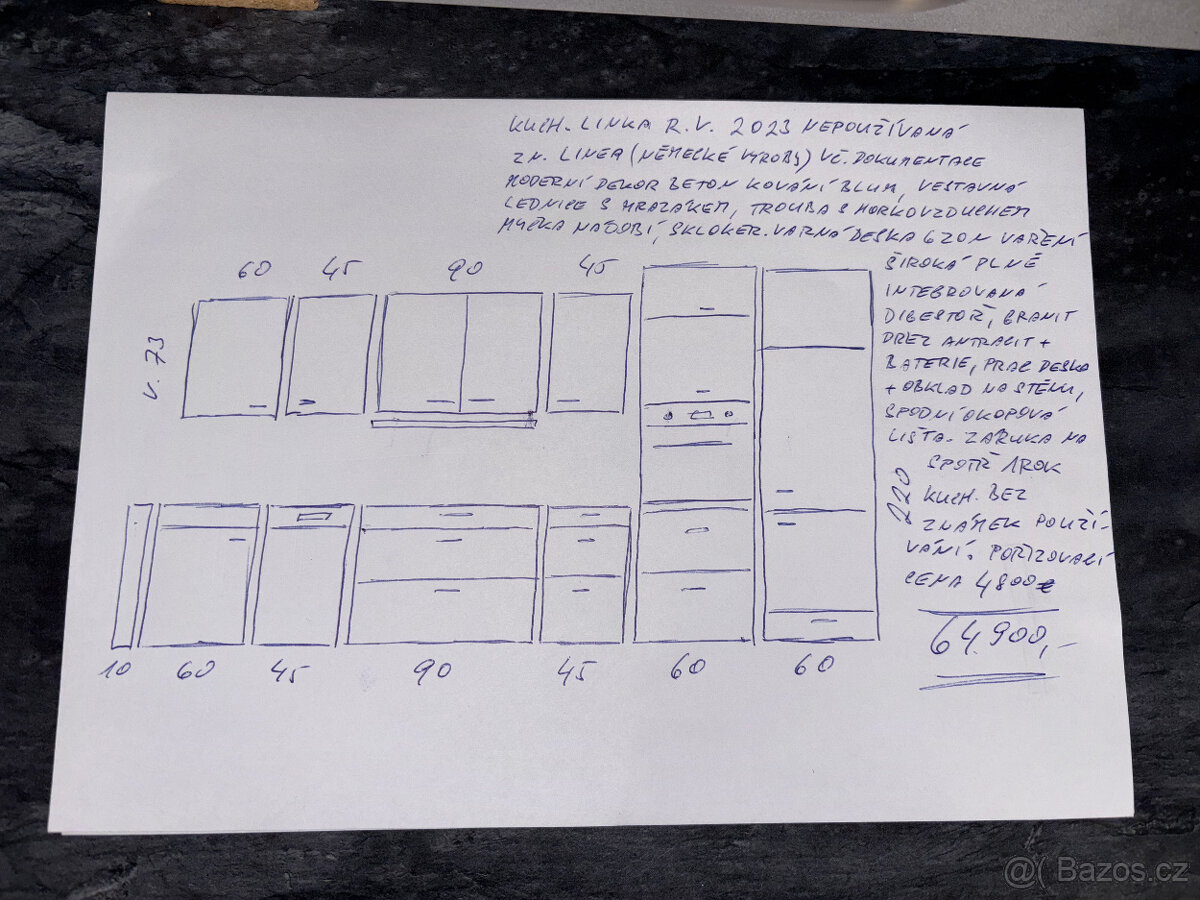 KUCH. LINKA R.V. 2023 NEPOUŽÍVANÁ
ZN. LINEA (NĚMECKÉ VÝROBY) VČ. DOKUMENTACE
MODERNÍ DEKOR BETON KOVÁNÍ BLUM, VESTAVNÁ
LEDNICE S MRAZÁKEM, TROUBA S HORKOVZDUCHEM
MYČKA NÁDOBÍ, SKLOKER. VARNÁ DESKA 6 ZÓN VAŘENÍ
ŠIROKÁ PLNĚ
INTEGROVANÁ
DIGESTOŘ, GRANIT
DŘEZ ANTRACIT +
BATERIE, PRAC DESKA
+ OBKLAD NA STĚNU,
SPODNÍ OKOPOVÁ
LIŠTA. ZÁRUKA NA
SPOTŘ 1ROK
KUCH. BEZ
ZNÁMEK POUŽÍ-
VÁNÍ. POŘIZOVACÍ
CENA 4800€
64.900,-
60 45 90 45
V. 73
220
10 60 45 90 45 60 60
@( Bazos.cz